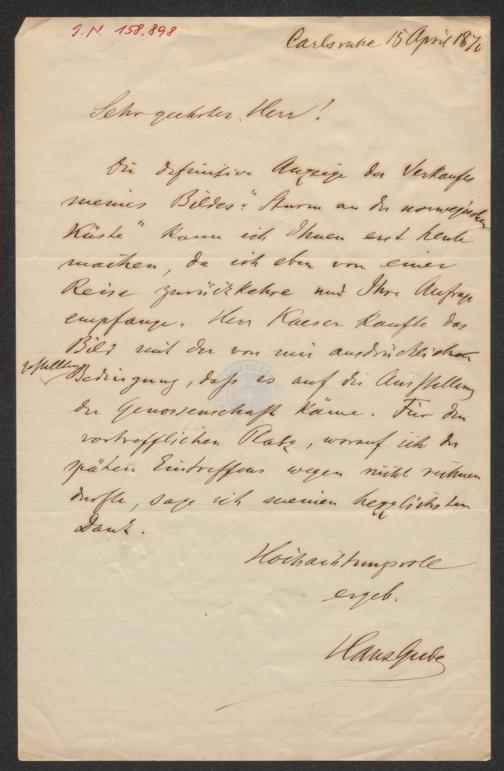 J.N. 158.898
Carlsruhe 15 April 1870
Sehr geehrter Herr!
Die definitive Anzeige des Verkaufes
meines Bildes: "Sturm an der norwegischen
Küste" kann ich Ihnen erst heute
machen, da ich eben von einer
Reise zurückkehre und Ihre Anfrage
empfange. Herr Kaeser kaufte das
Bild mit der von mir ausdrücklich
gestellten Bedingung, daß es auf die Ausstellung
der Genossenschaft käme. Für den
vortrefflichen Platz, worauf ich des
späten Eintreffens wegen nicht rechnen
durfte, sage ich meinen herzlichsten
Dank.
Hochachtungsvoll
ergeb.
Hans Gude